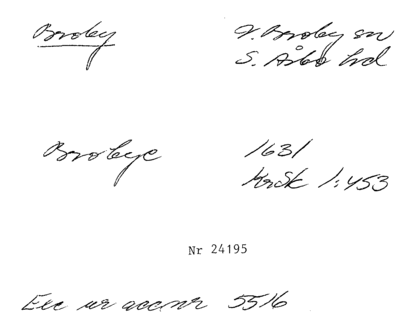 Broby V. Broby sn
S. Åsbo hd
Brobye 1631
KrSk 1:453
Nr 24195
Exc ur accnr 5516